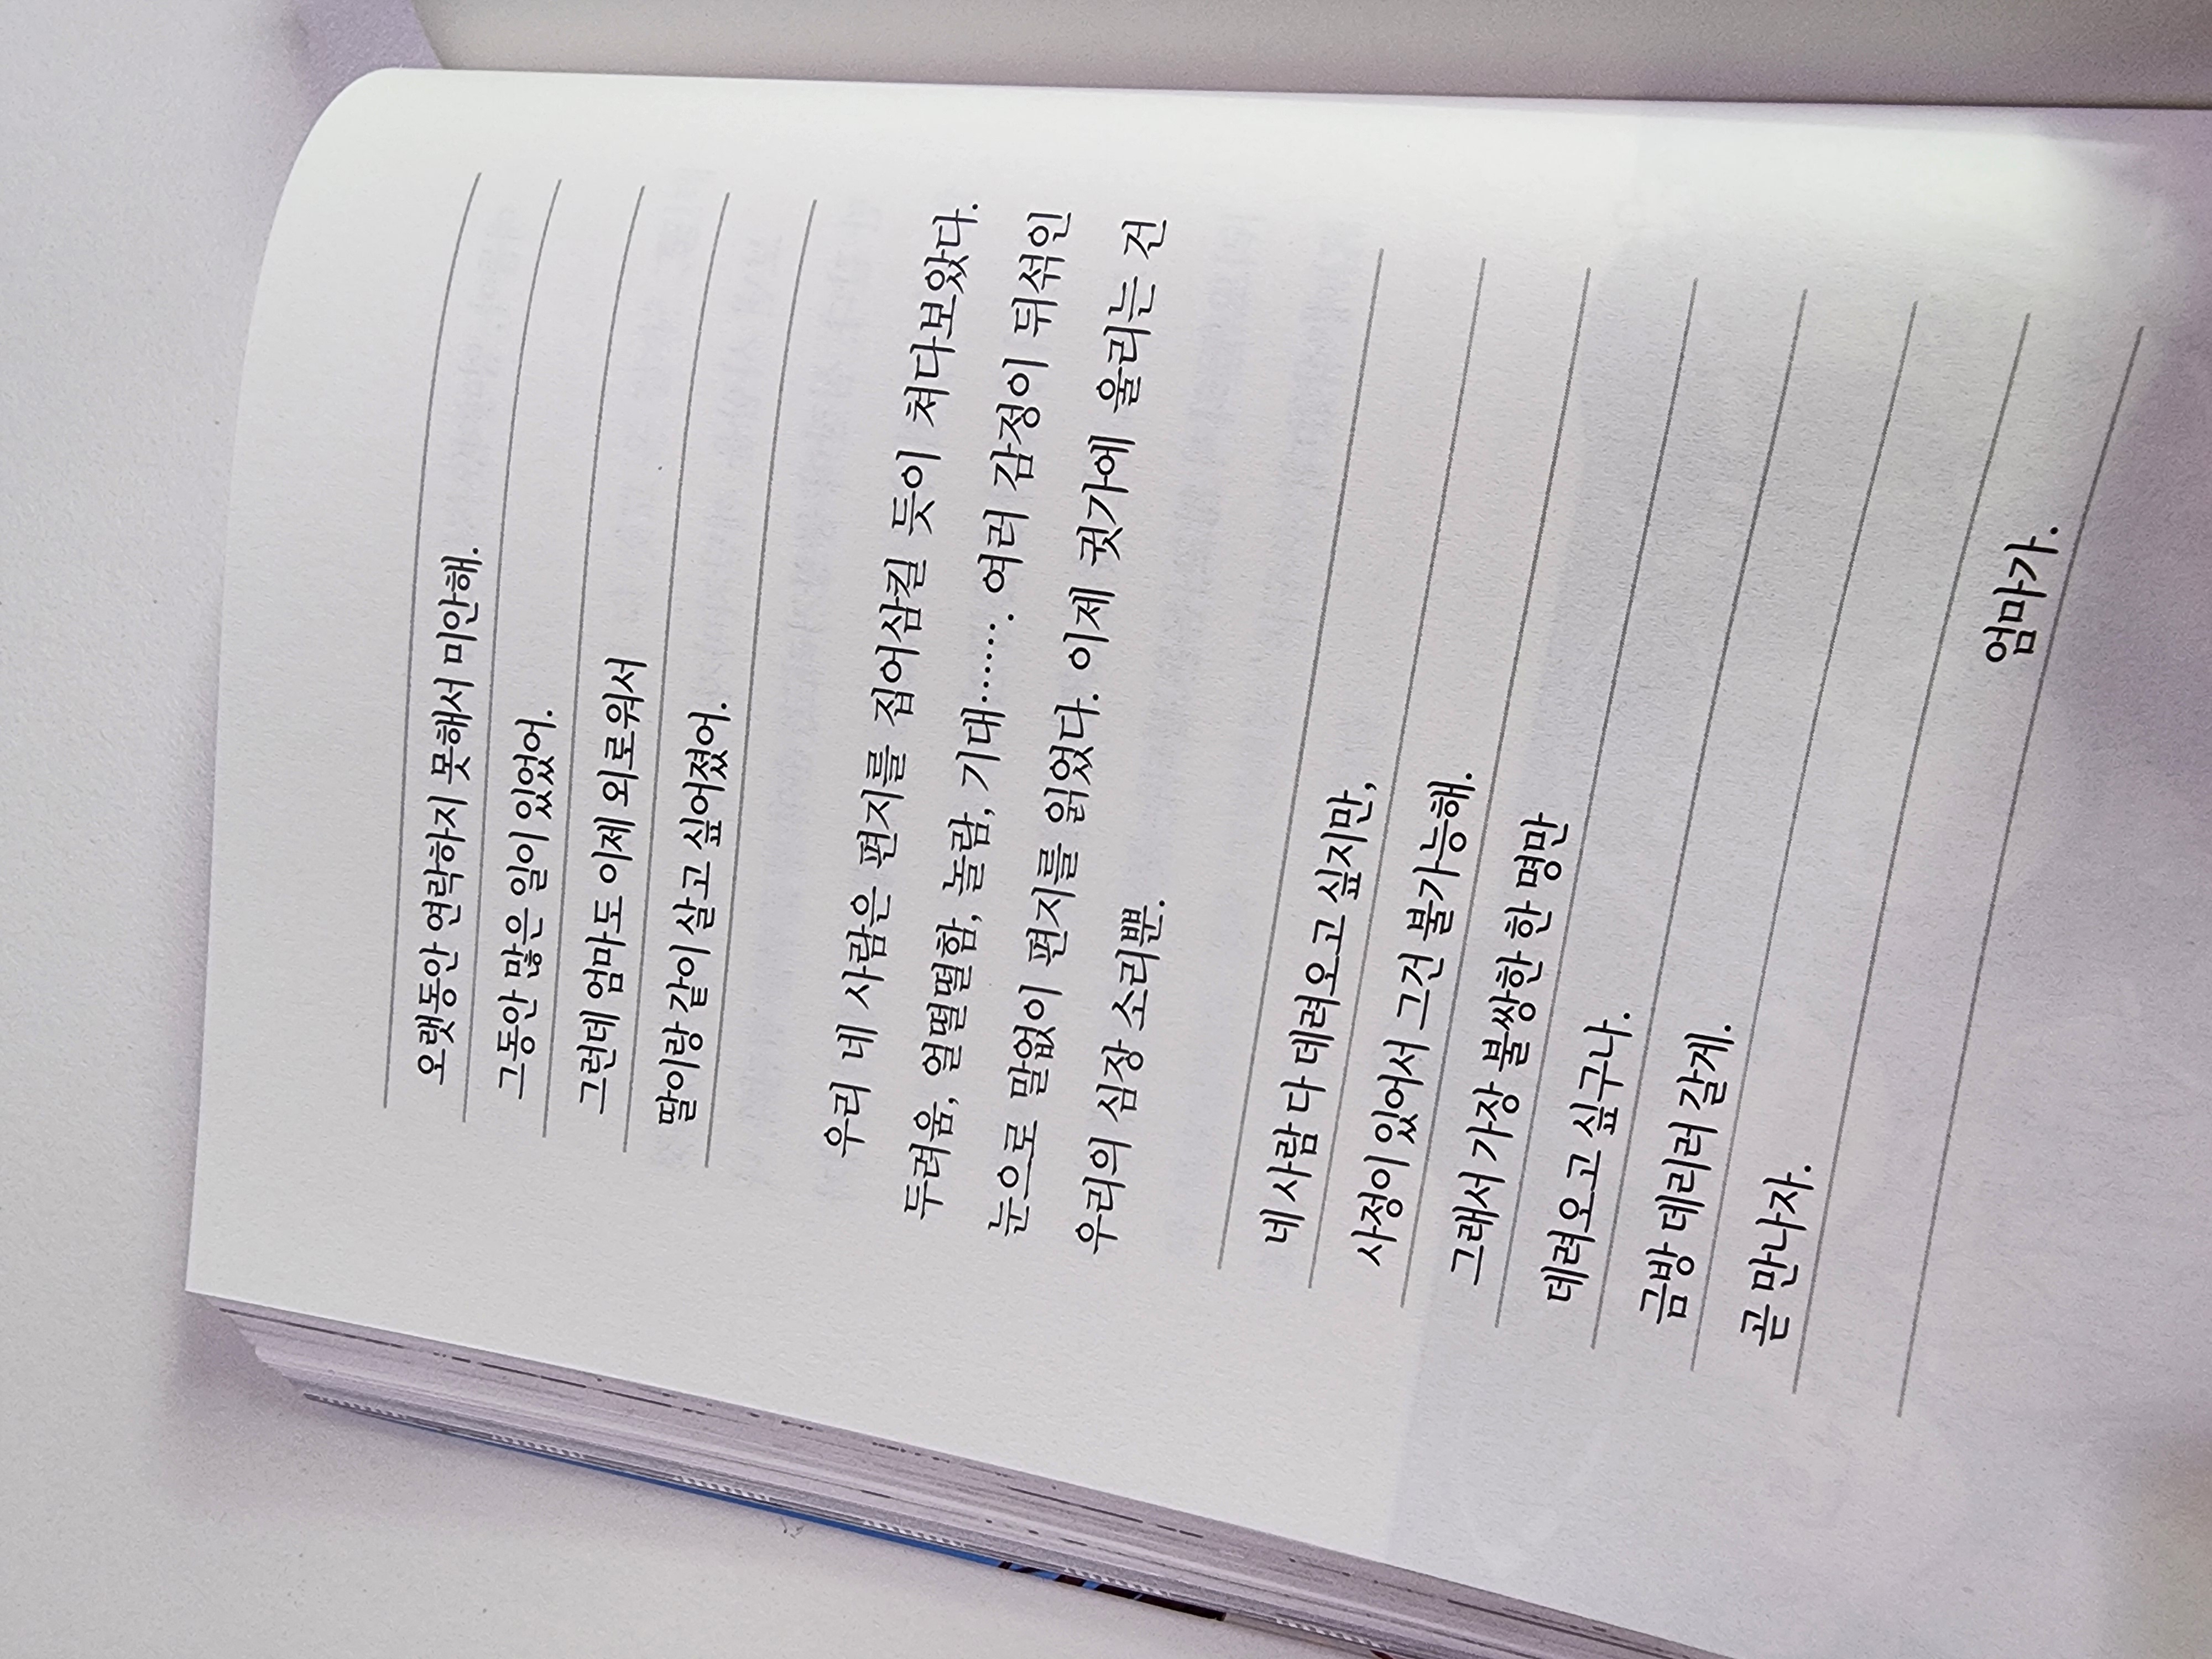 오랫동안 연락하지 못해서 미안해.
그동안 많은 일이 있었어.
그런데 엄마도 이제 외로워서
딸이랑 같이 살고 싶어졌어.
우리 네 사람은 편지를 집어삼킬 듯이 쳐다보았다.
두려움, 얼떨떨함, 놀람, 기대……. 여러 감정이 뒤섞인
눈으로 말없이 편지를 읽었다. 이제 귓가에 울리는 건
우리의 심장 소리뿐.
네 사람 다 데려오고 싶지만,
사정이 있어서 그건 불가능해.
그래서 가장 불쌍한 한 명만
데려오고 싶구나.
금방 데리러 갈게.
곧 만나자.
엄마가.